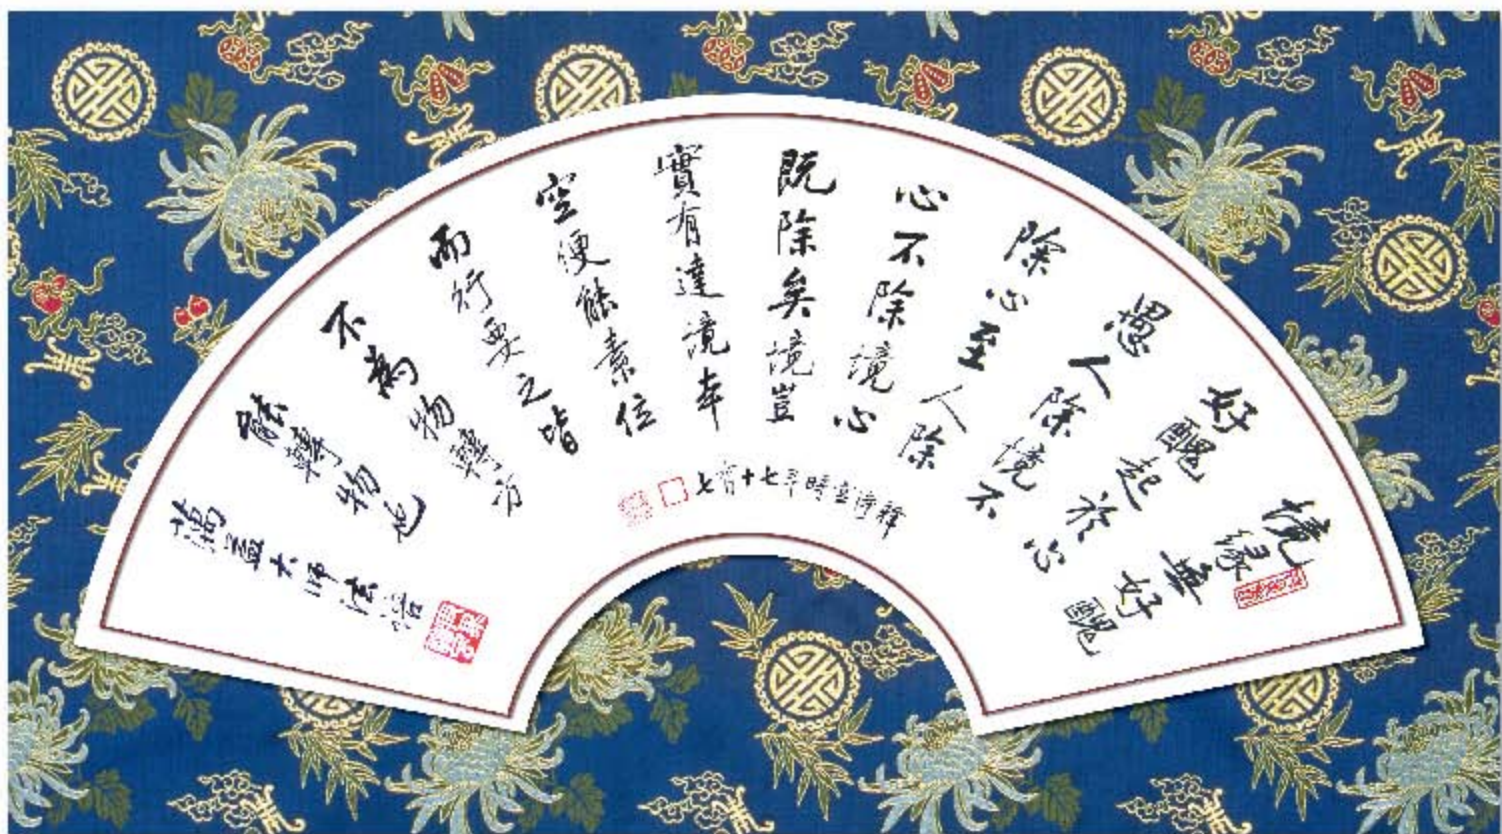 境緣無好醜
好醜起於心
愚人除境不
除心至人除
心不除境心
既除矣境豈
實有達境本
空便能素位
而行要之皆
不為物轉方
能轉物也
蕅益大師法語
釋淨空時年七十有七